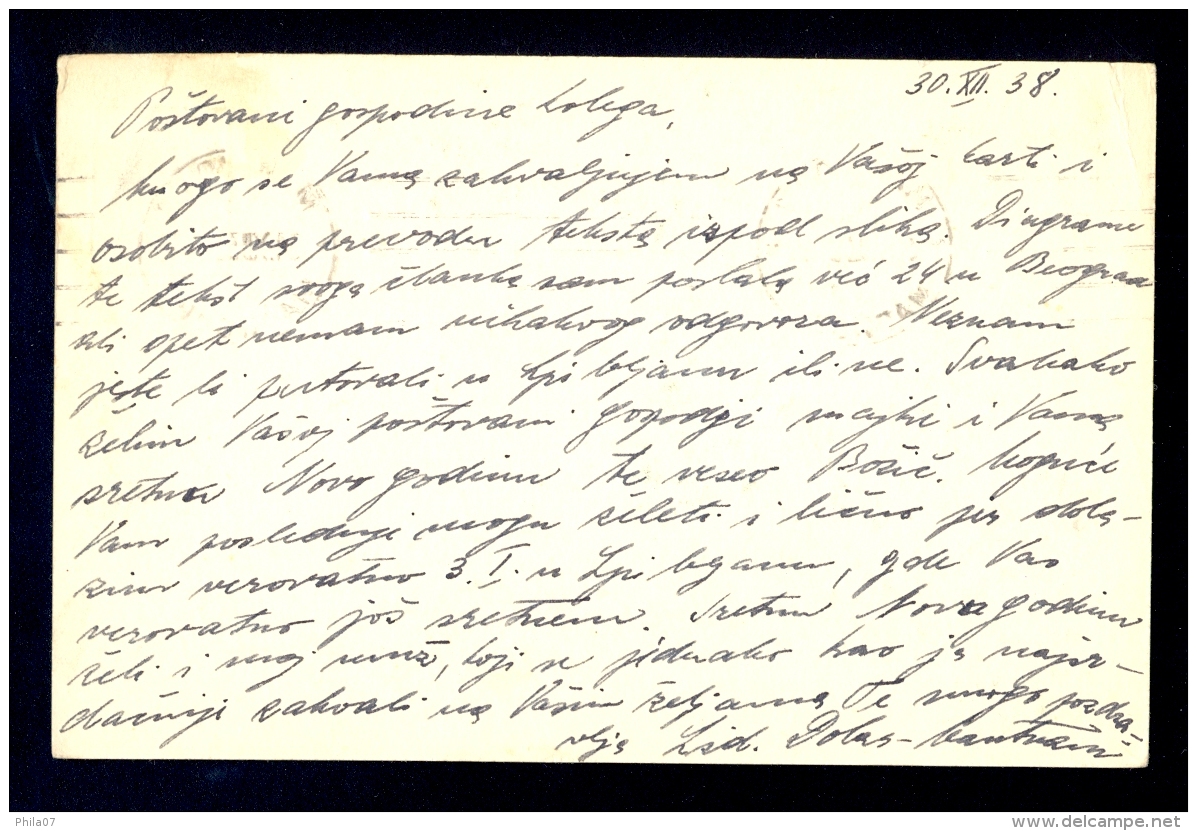 30.XII.38.
Poštovani gospodine kolega,
mnogo se Vama zahvaljujem na Vašoj karti i
osobito na prevodu teksta ispod slika. Diagrame
te tekst svoga članka sam poslala već 24 u Beograd
ali opet nemam nikakvog odgovora. Neznam
jeste li putovali u Ljubljanu ili ne. Svakako
želim Vašoj poštovani gospodji majki i Vama
sretnu Novo godinu te veseo Božić. Moguće
Vam poslednje mogu želeti i lično jer dola-
zim verovatno 3.I. u Ljubljanu, gde Vas
verovatno još sretnem. Sretnu Novu godinu
želi i moj muž, koji se jednako kao ja najsr-
dačnije zahvali na Vašim željama Te mnogo pozdra-
vlja
Phila07
www.delcampe.net